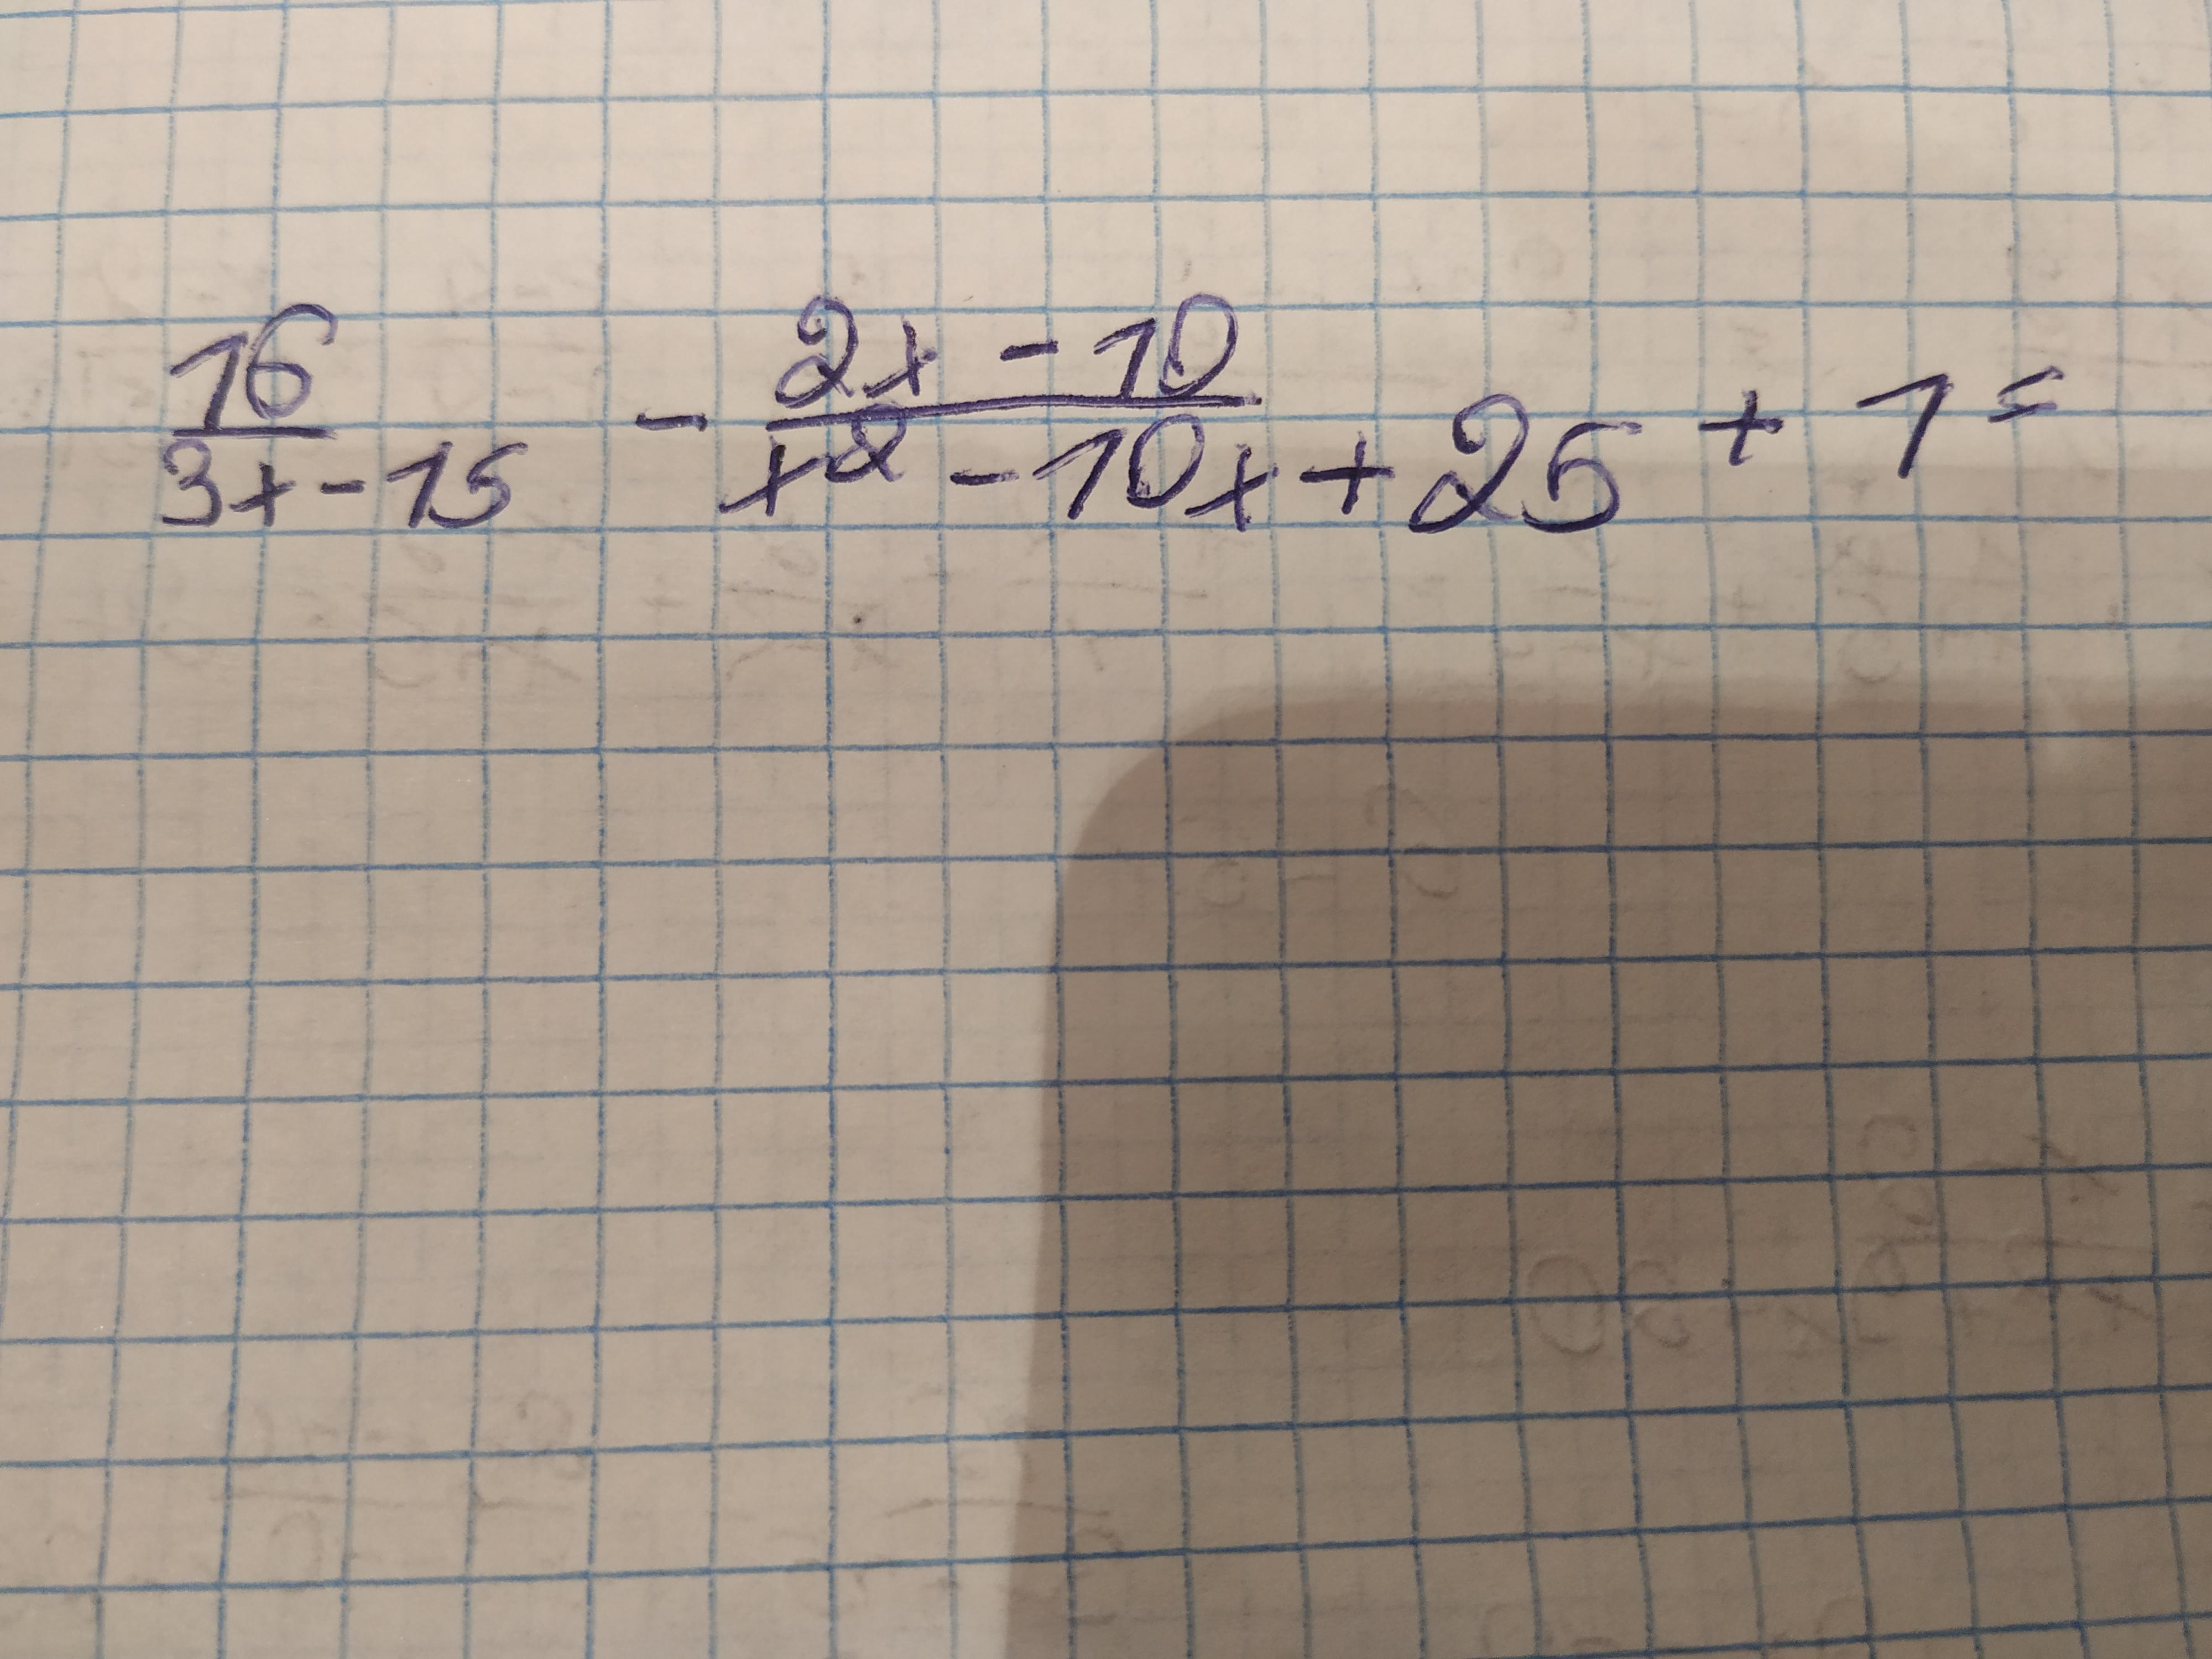 16/(3x-15) - (2x-10)/(x²-10x+25) + 1 =